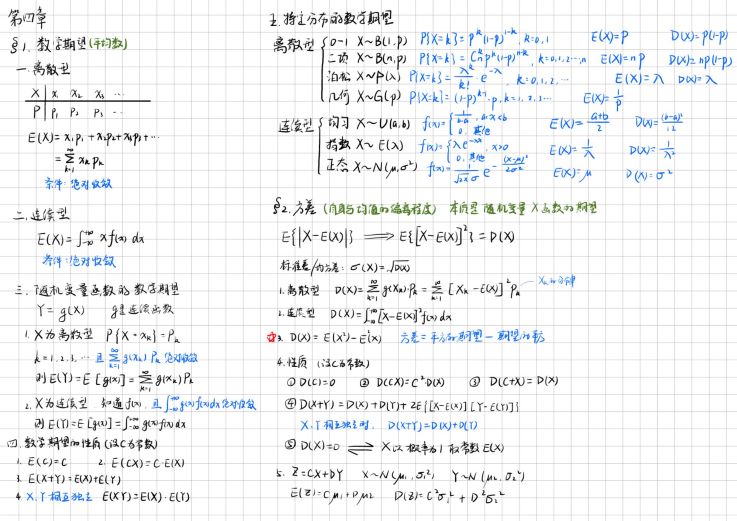 第四章
§1. 数学期望 (平均数)
一. 离散型
X | x₁ x₂ x₃ ...
P | P₁ P₂ P₃ ...
E(X) = x₁p₁ + x₂p₂ + x₃p₃ + ...
= ∑_{k=1}^{∞} xₖ pₖ
条件: 绝对收敛
二. 连续型
E(X) = ∫_{-∞}^{+∞} x f(x) dx
条件: 绝对收敛
三. 随机变量函数的数学期望
Y = g(X) g是连续函数
1. X为离散型 P{X = xₖ} = Pₖ
k = 1. 2. 3. ... 且 ∑_{k=1}^{∞} g(xₖ) Pₖ 绝对收敛
则 E(Y) = E[g(x)] = ∑_{k=1}^{∞} g(xₖ) Pₖ
2. X为连续型 知道 f(x), 且 ∫_{-∞}^{+∞} g(x) f(x) dx 绝对收敛
则 E(Y) = E[g(x)] = ∫_{-∞}^{+∞} g(x) f(x) dx
四. 数学期望的性质 (设C为常数)
1. E(C) = C 2. E(CX) = C·E(X)
3. E(X+Y) = E(X) + E(Y)
4. X, Y 相互独立 E(XY) = E(X)·E(Y)
五. 特定分布的数学期望
离散型 { 0-1 X~B(1,p) P{X=k} = pᵏ(1-p)^{1-k}, k=0,1 E(X)=P D(X)=p(1-p)
二项 X~B(n,p) P{X=k} = Cₙᵏ pᵏ(1-p)^{n-k}, k=0,1,2,...,n E(X)=np D(X)=np(1-p)
泊松 X~P(λ) P{X=k} = λᵏ/k! · e^{-λ} k=0,1,2,... E(X)=λ D(X)=λ
几何 X~G(p) P{X=k} = (1-p)^{k-1}·p, k=1,2,... E(X)=1/p
连续型 { 均匀 X~U(a,b) f(x) = { 1/(b-a), a<x<b 0, 其他 E(X)=(a+b)/2 D(X)=(b-a)²/12
指数 X~E(λ) f(x) = { λe^{-λx}, x>0 0, 其他 E(X)=1/λ D(X)=1/λ²
正态 X~N(μ,σ²) f(x) = 1/(√2π σ) e^{-(x-μ)²/2σ²} E(X)=μ D(X)=σ²
§2. 方差 (随机与均值的偏离程度) 本质是随机变量X函数的期望
E{|X-E(X)|} ⟹ E{[X-E(X)]²} = D(X)
标准差/均方差: σ(X) = √D(X)
1. 离散型 D(X) = ∑_{k=1}^{∞} g(xₖ)·Pₖ = ∑_{k=1}^{∞} [Xₖ - E(X)]² Pₖ
2. 连续型 D(X) = ∫_{-∞}^{+∞} [X-E(X)]² f(x) dx
☆3. D(X) = E(X²) - E²(X) 方差 = 平方的期望 - 期望的平方
4. 性质 (设C为常数)
① D(C)=0 ② D(CX)=C²·D(X) ③ D(C+X) = D(X)
④ D(X+Y) = D(X) + D(Y) + 2E{[X-E(X)][Y-E(Y)]}
X, Y 相互独立时, D(X+Y) = D(X) + D(Y)
⑤ D(X)=0 ⇌ X以概率为1取常数 E(X)
5. Z = CX + DY X~N(μ₁, σ₁²) Y~N(μ₂, σ₂²)
E(Z) = Cμ₁ + Dμ₂ D(Z) = C²σ₁² + D²σ₂²